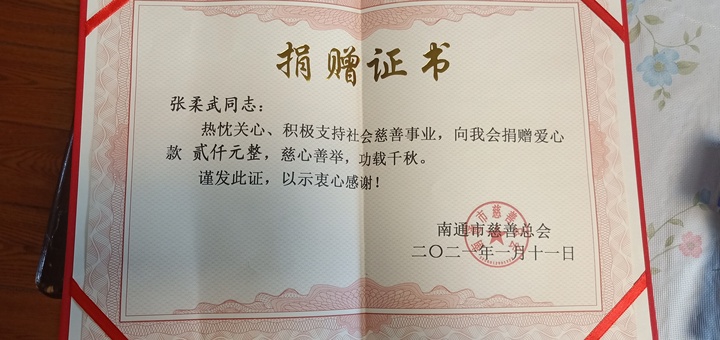 捐赠证书
张柔武同志：
热忱关心、积极支持社会慈善事业，向我会捐赠爱心
款 贰仟元整，慈心善举，功载千秋。
谨发此证，以示衷心感谢！
南通市慈善总会
二〇二一年一月十一日